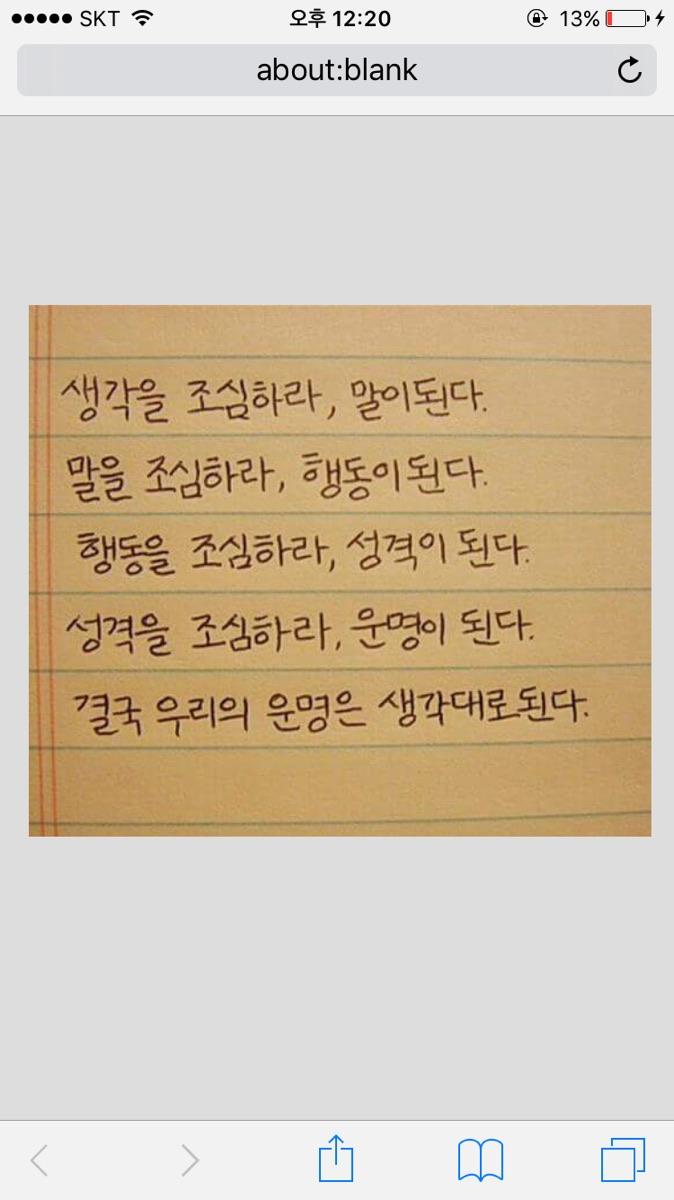 SKT 오후 12:20 13%
about:blank
생각을 조심하라, 말이된다.
말을 조심하라, 행동이된다.
행동을 조심하라, 성격이 된다.
성격을 조심하라, 운명이 된다.
결국 우리의 운명은 생각대로된다.